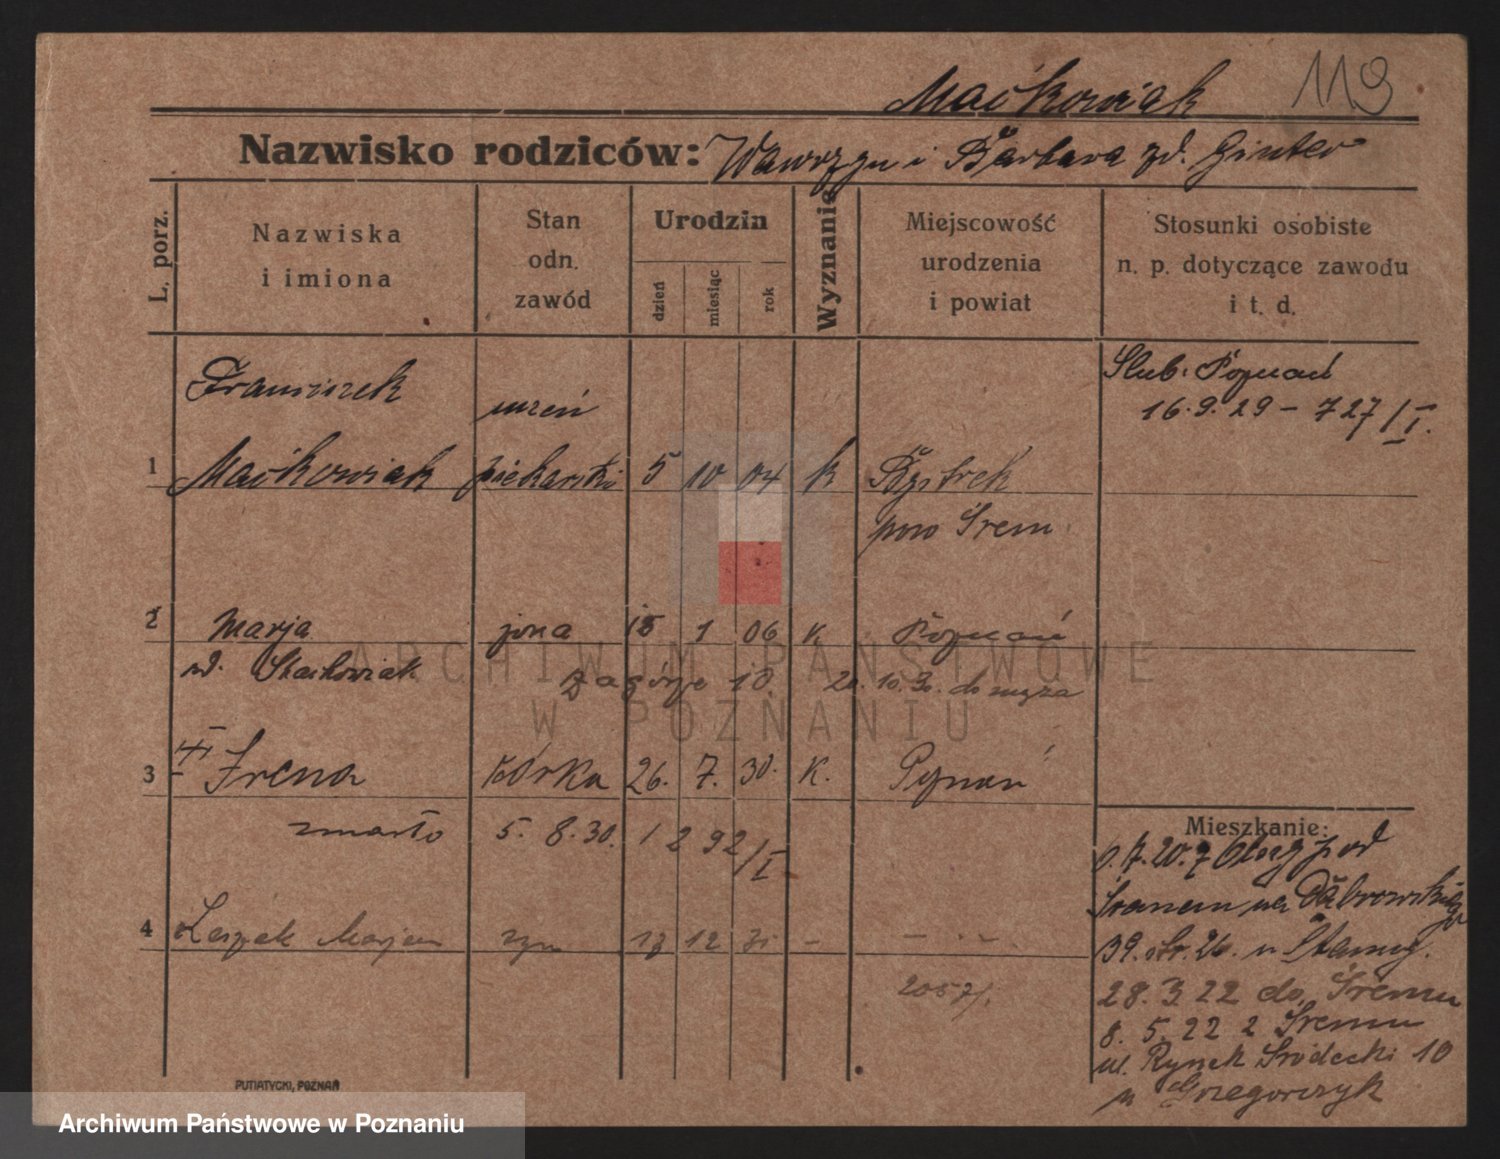 Maćkowiak 119
Nazwisko rodziców: Wawrzyn i Barbara zd. Ginter
L. porz.
Nazwiska
i imiona
Stan
odn.
zawód
Urodzin
dzień
miesiąc
rok
Wyznanie
Miejscowość
urodzenia
i powiat
Stosunki osobiste
n. p. dotyczące zawodu
i t. d.
Ślub. Poznań
16.9.29 - 727/I.
Franciszek
uczeń
1 Maćkowiak piekarski 5 10 04 k Bystrek
pow Śrem
2 Marja żona 15 1 06 k. Poznań
zd. Stachowiak Zagórze 10. 20.10.30. do męża
3 Irena córka 26. 7. 30. k. Poznań
zmarła 5. 8. 30. 1292/I
4 Leszek Marjan syn 12 31 -
2057/.
Mieszkanie:
39. str. 26. u
28. 3 22 do Śremu
8. 5. 22 z Śremu
ul. Rynek Śródecki 10
u Grzegorczyk
PUTIATYCKI, POZNAŃ
ARCHIWUM PAŃSTWOWE
W POZNANIU
Archiwum Państwowe w Poznaniu